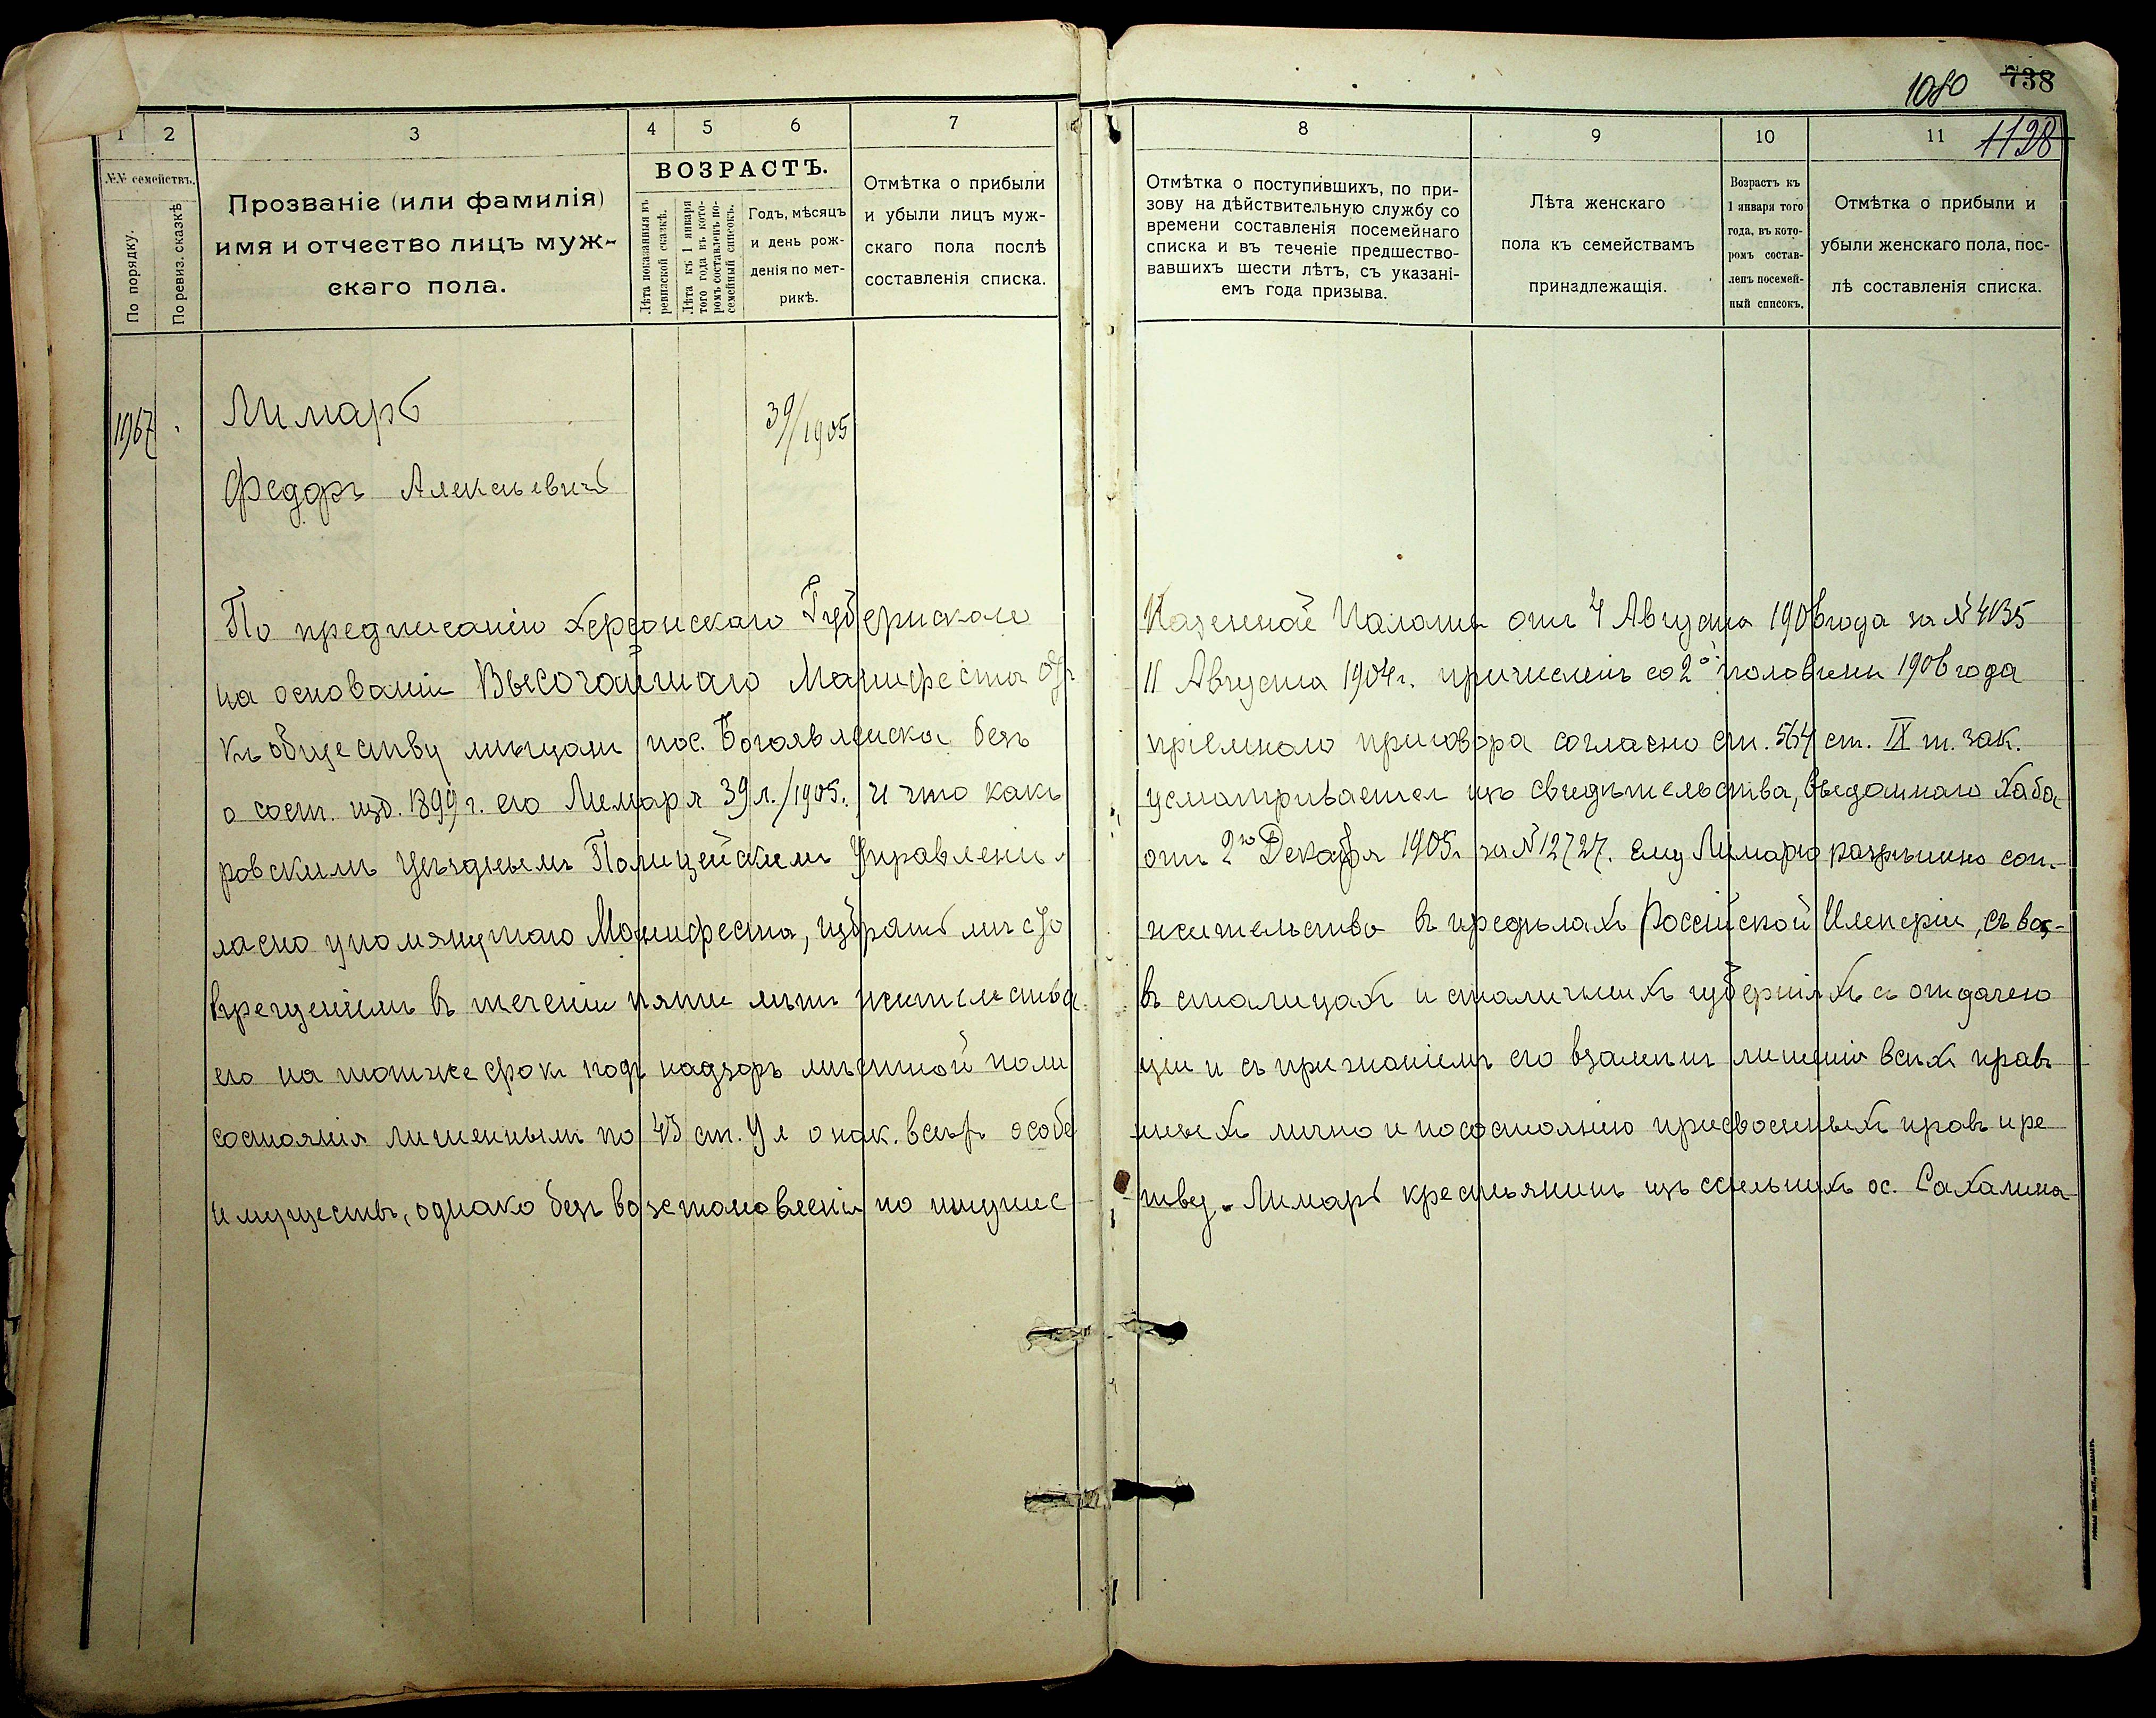 1080 738
1 2 3 4 5 6 7 8 9 10 11 1128
№№ семействъ.
По порядку.
По ревиз. сказкѣ
Прозваніе (или фамилія)
имя и отчество лицъ муж-
скаго пола.
ВОЗРАСТЪ.
Лѣта показанныя въ
ревизской сказкѣ.
Лѣта къ 1 января
того года въ кото-
ромъ составленъ по-
семейный списокъ.
Годъ, мѣсяцъ
и день рож-
денія по мет-
рикѣ.
Отмѣтка о прибыли
и убыли лицъ муж-
скаго пола послѣ
составленія списка.
Отмѣтка о поступившихъ, по при-
зову на дѣйствительную службу со
времени составленія посемейнаго
списка и въ теченіе предшество-
вавшихъ шести лѣтъ, съ указані-
емъ года призыва.
Лѣта женскаго
пола къ семействамъ
принадлежащія.
Возрастъ къ
1 января того
года, въ кото-
ромъ состав-
ленъ посемей-
ный списокъ.
Отмѣтка о прибыли и
убыли женскаго пола, пос-
лѣ составленія списка.
1967 Лимарь 39/1905
Федоръ Алексѣевичъ
По предписанію Херсонскаго Губернскаго Казенной Палаты отъ 4 Августа 1906 года за № 4135
на основаніи Высочайшаго Манифеста отъ 11 Августа 1904 г. причисленъ со 2й половины 1906 года
къ обществу мѣщанъ пос. Богоявленска безъ пріемнаго приговора согласно ст. 564 ст. IX т. зак.
о сост. изд. 1899 г. его Лимаря 39 л./1905. и что какъ усматривается изъ свидѣтельства, выданнаго Хаба
ровскимъ Уѣзднымъ Полицейскимъ Управленіем отъ 2го Декабря 1905 г. за № 12727. ему Лимарю разрѣшено сог-
ласно упомянутаго Манифеста, избрать мѣсто жительства въ предѣлахъ Россійской Имперіи, съ вос-
врещеніемъ въ теченіи пяти лѣтъ жительства въ столицахъ и столичныхъ губерніяхъ съ отдачею
его на тотъ же срокъ подъ надзоръ мѣстной поли ціи и съ признаніемъ его взамѣнъ лишенія всѣхъ правъ
состоянія лишеннымъ по 43 ст. Ул о нак. всѣхъ особе нныхъ лично и по состоянію присвоенныхъ правъ и пре
имуществъ, однако безъ возстановленія по имущес тву. Лимарь крестьянинъ изъ ссыльныхъ ос. Сахалина